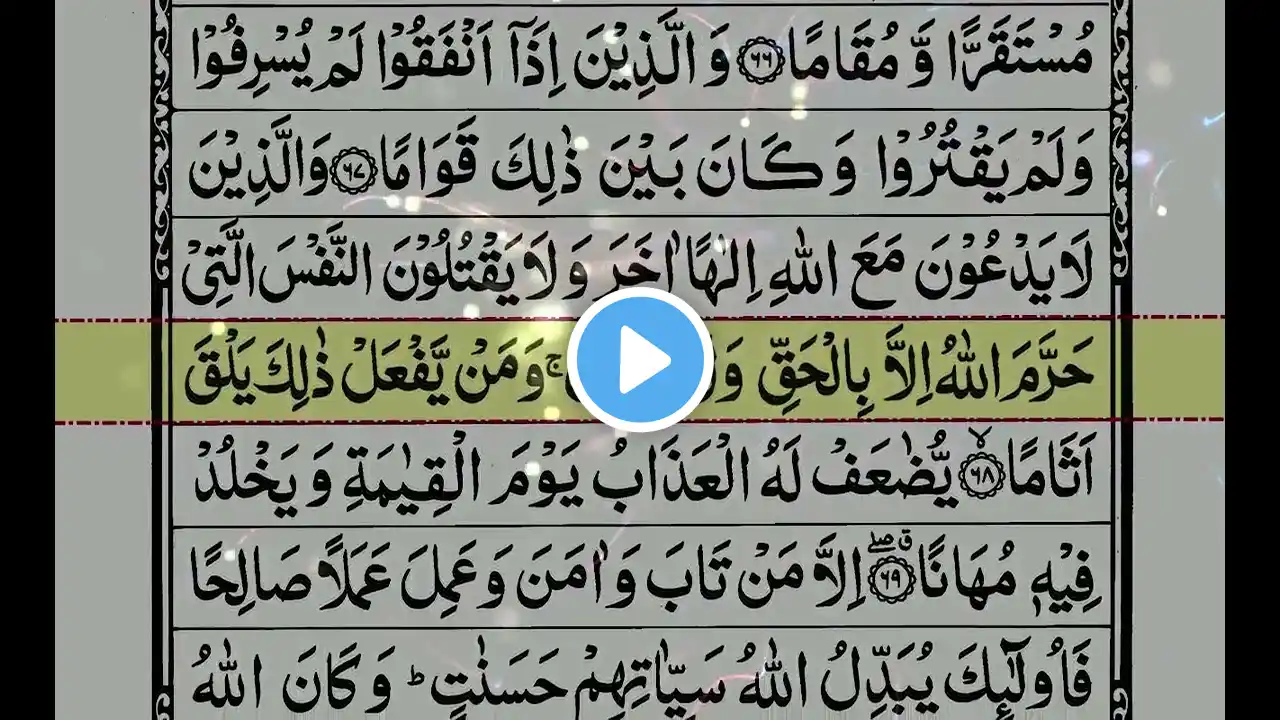 مُسْتَقَرًّا وَّ مُقَامًا ﴿۶۶﴾ وَ الَّذِيْنَ اِذَآ اَنْفَقُوْا لَمْ يُسْرِفُوْا
وَلَمْ يَقْتُرُوْا وَ كَانَ بَيْنَ ذٰلِكَ قَوَامًا ﴿۶۷﴾ وَالَّذِيْنَ
لَا يَدْعُوْنَ مَعَ اللّٰهِ اِلٰهًا اٰخَرَ وَ لَا يَقْتُلُوْنَ النَّفْسَ الَّتِيْ
حَرَّمَ اللّٰهُ اِلَّا بِالْحَقِّ ۚ وَمَنْ يَّفْعَلْ ذٰلِكَ يَلْقَ
اَثَامًا ﴿۶۸﴾ يُّضٰعَفْ لَهُ الْعَذَابُ يَوْمَ الْقِيٰمَةِ وَ يَخْلُدْ
فِيْهٖ مُهَانًا ﴿۶۹﴾ اِلَّا مَنْ تَابَ وَ اٰمَنَ وَ عَمِلَ عَمَلًا صَالِحًا
فَاُولٰٓئِكَ يُبَدِّلُ اللّٰهُ سَيِّاٰتِهِمْ حَسَنٰتٍ ؕ وَ كَانَ اللّٰهُ